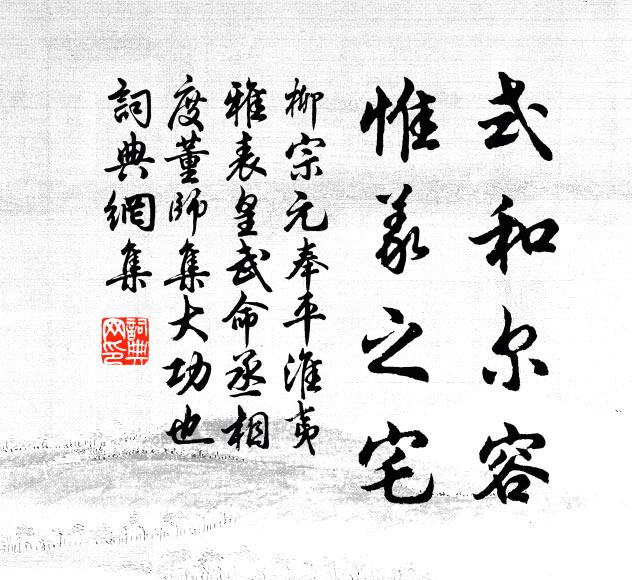 式和尔容
惟義之宅
柳宗元奉平淮夷
雅表皇武命丞相
度董師集大功也
詞典網集
詞典
网印